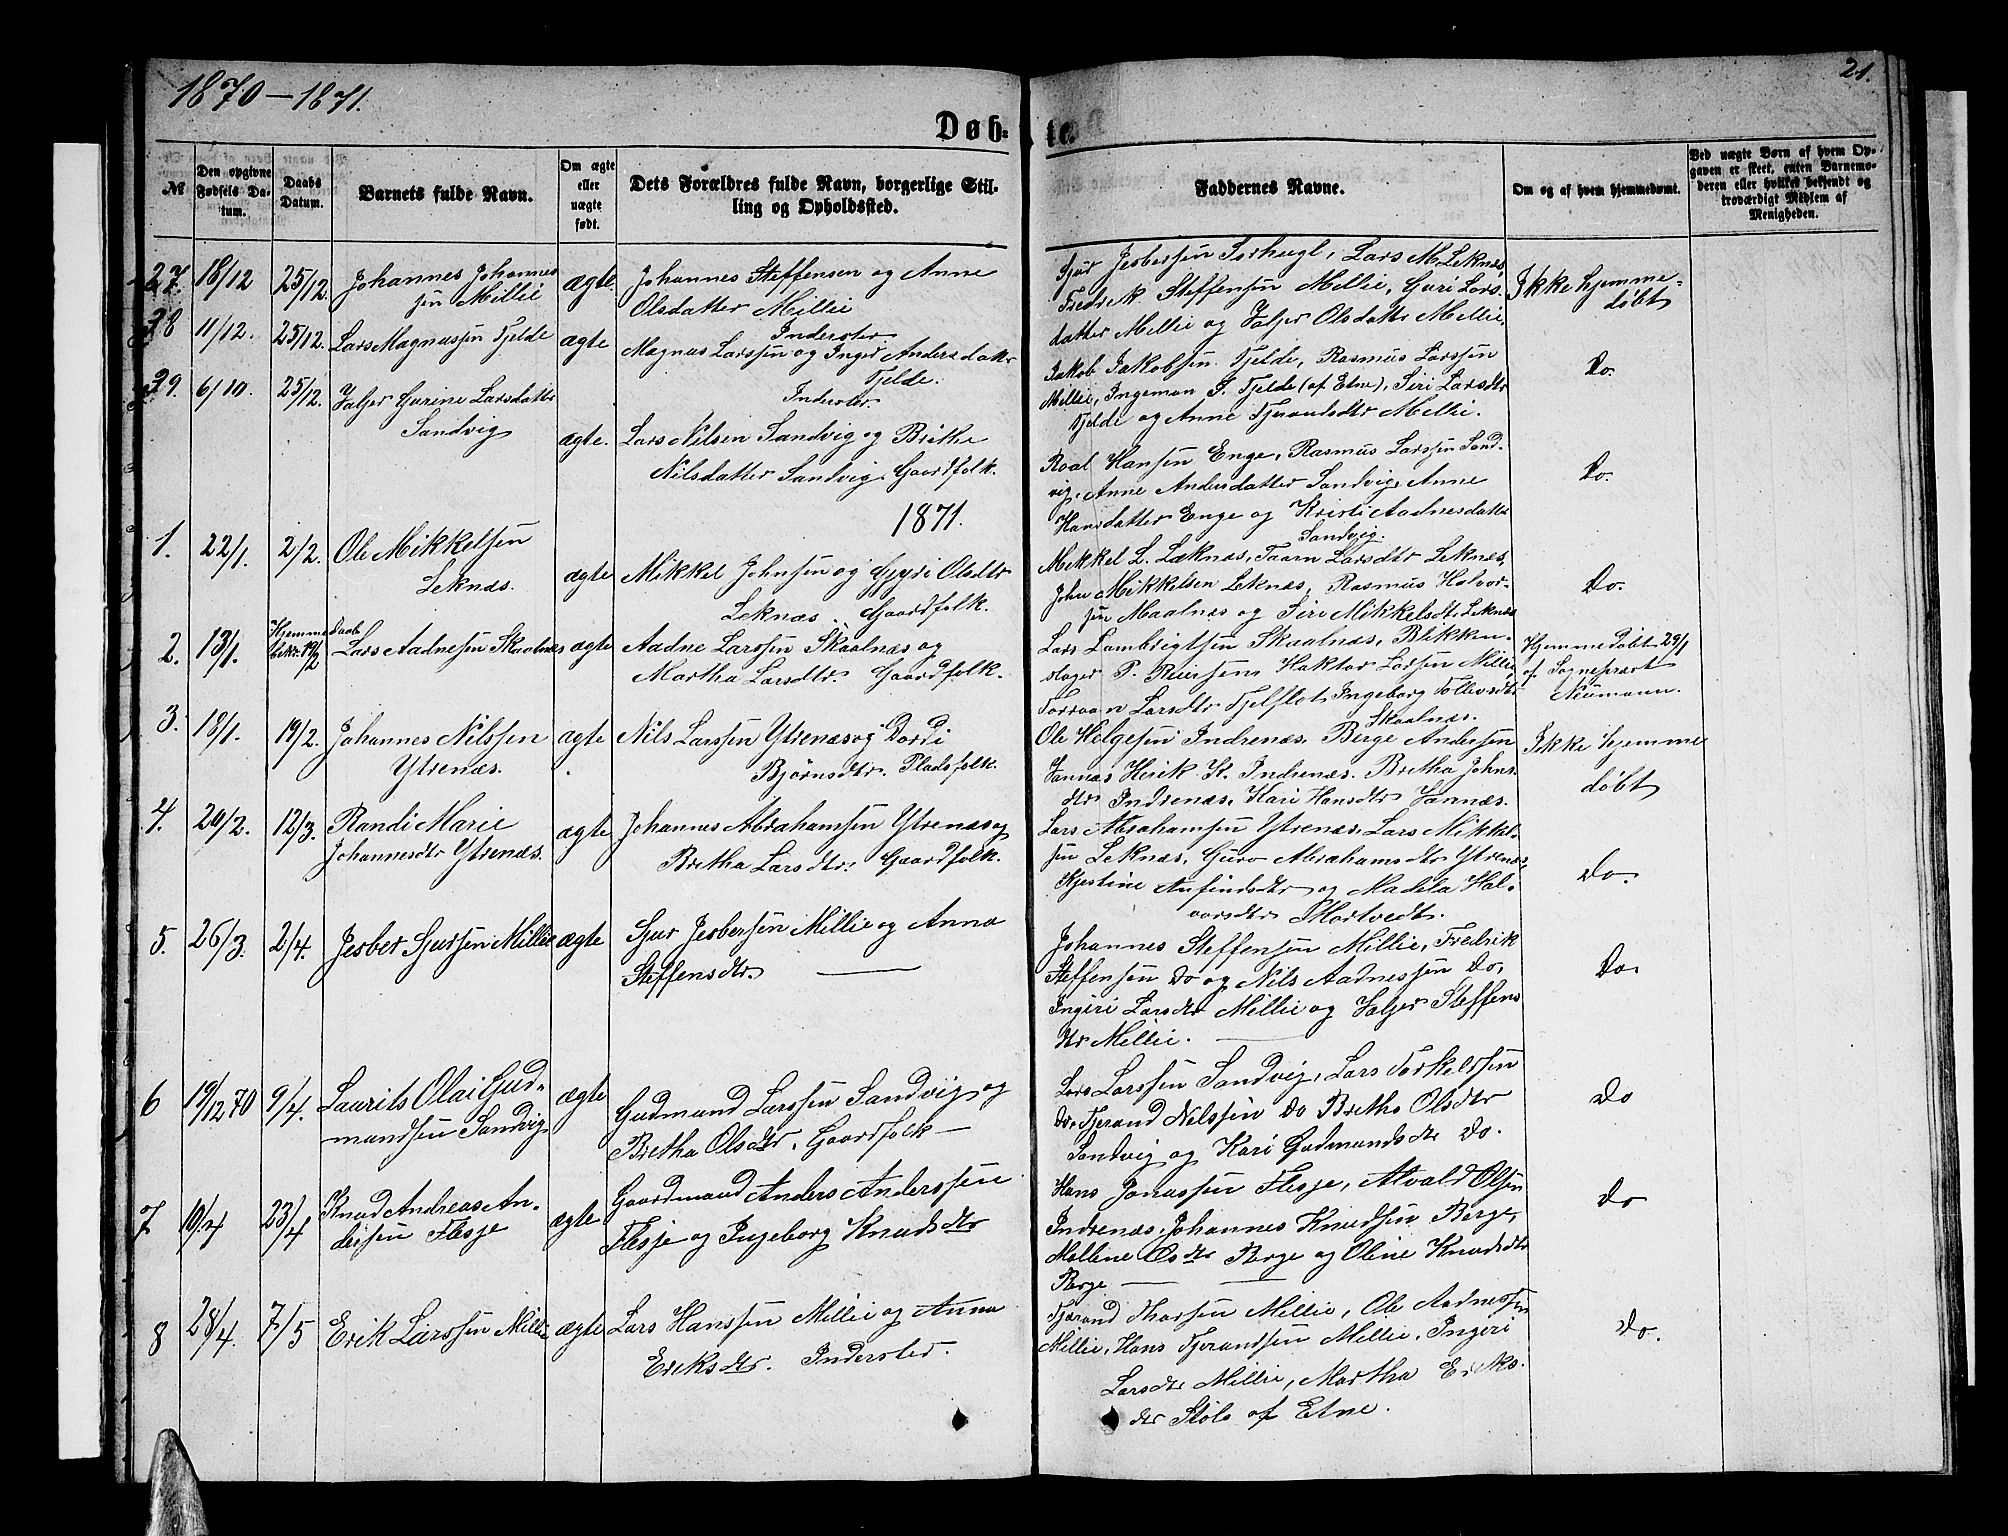 1870-1871.
21.
Døb-
te.
№
Den opgivne Fødsels Datum.
Daabs Datum.
Barnets fulde Navn.
Om ægte eller uægte født.
Dets Forældres fulde Navn, borgerlige Stilling og Opholdssted.
Faddernes Navne.
Om og af hvem hjemmedøbt.
Ved uægte Børn af hvem Opgaven er skeet, enten Barnemoderen eller hvilket bekjendt og troværdigt Medlem af Menigheden.
27. 18/12 25/12. Johannes Johannes
sen Millie
ægte.
Johannes Steffensen og Anne
Olsdatter Millie
Inderster.
Sjur Jesbersen Lars M. Leknæs,
Fredrik Steffensen Millie, Guri Lars
datter Millie og Valjer Olsdatter Millie,
Ikke hjemme-
døbt
38 11/12. 25/12. Lars Magnussen Tjelde
ægte
Magnus Larssen og Inger Andersdatter
Tjelde.
Inderster.
Jakob Jakobsen Tjelde, Rasmus Larssen
Millie, Ingeman S. Tjelde (af Etne), Siri Larsdtr
Tjelde og Anne Tjerandsdtr Millie.
Do.
39. 6/10. 25/12. Valjer Gurine Larsdatter
Sandvig
ægte.
Lars Nilsen Sandvig og Brithe
Nilsdatter Sandvig. Gaardfolk.
Roal Hansen Enge, Rasmus Larssen Sand-
vig, Anne Andersdatter Sandvig, Anne
Hansdatter Enge og Kristi Aadnesdatter
Sandvig.
Do.
1871.
1. 22/1. 2/2. Ole Mikkelsen
Leknæs.
ægte
Mikkel Johnsen og Gjyri Olsdtr
Leknæs. Gaardfolk.
Mikkel L. Læknæs, Taarn Larsdtr Leknæs,
John Mikkelsen Leknæs, Rasmus Halvor-
sen Maalnæs og Siri Mikkelsdt. Leknæs
Do.
2. 13/1. Hjemmedaab
bekr. 19/2
Lars Aadnesen Skaalnæs
ægte
Aadne Larssen Skaalnæs og
Martha Larsdtr. Gaardfolk.
Lars Lambrigtsen Skaalnæs, Blikken-
slager P. Reiersen, Haktor Larsen Millie,
Larsdtr Tjelflot, Ingeborg Tollevsdtr
Skaalnæs.
Hjemmedøbt 29/1
af Sognepræst
Neumann.
3. 18/1. 19/2. Johannes Nilssen
Ytrenæs.
ægte
Nils Larssen Ytrenæs og Dordi
Bjørnsdtr. Pladsfolk.
Ole Helgesen Indrenæs, Berge Andersen
Vannæs, K. Indrenæs. Bretha Johns
dtr Indrenæs, Kari Hansdtr Vannæs.
Ikke hjemme
døbt
4. 20/2. 12/3. Randi Marie
Johannesdtr Ytrenæs.
ægte
Johannes Abrahamsen Ytrenæs og
Bretha Larsdtr. Gaardfolk.
Lars Abrahamsen Ytrenæs, Lars Mikkel
sen Leknæs, Guro Abrahamsdtr Ytrenæs,
Kjestine Anfindsdtr og Madela Hal-
vorsdtr Mortvedt.
Do.
5. 26/3. 2/4. Jesber Sjursen Millie
ægte
Sjur Jesbersen Millie og Anna
Steffensdtr.
Johannes Steffensen Millie, Fredrik
Steffensen Do og Nils Aadnessen Do,
Ingeri Larsdtr Millie og Valjer Steffens
dtr Millie.
Do.
6 19/12 70 9/4. Laurits Olai Gud-
mundsen Sandvig
ægte
Gudmund Larssen Sandvig og
Bretha Olsdtr, Gaardfolk
Lars Larssen Sandvig, Lars Torkeldsen
Do. Tjerand Nilssen Do Bretha Olsdtr
Sandvig og Kari Gudmundsdtr Do.
Do
7 10/4 23/4 Knud Andreas An-
dersen Flesje
ægte
Gaardmand Anders Anderssen
Flesje og Ingeborg Knudsdtr
Hans Jonassen Flesje, Atvald Olsen
Indrenæs, Johannes Knudsen Berge,
Malline Osdtr Berge og Oline Knudsdtr
Berge
Do
8 28/4. 7/5 Erik Larssen Millie
ægte
Lars Hanssen Millie og Anna
Eriksdtr. Inderster.
Tjærand Thorsen Millie, Ole Aadnessen
Millie, Hans Tjerandsen Millie, Ingeri
Larsdtr Millie, Martha Eriks
dtr Støle af Etne.
Do.